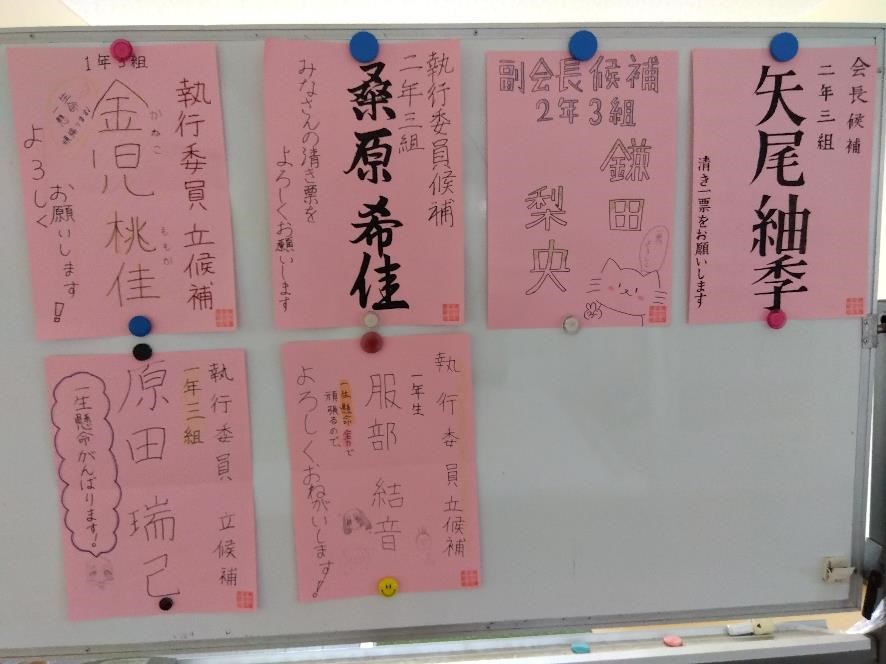 会長候補
二年三組
矢尾紬季
清き一票をお願いします
副会長候補
2年3組
鎌田
梨央
執行委員候補
二年三組
桑原希佳
みなさんの清き票を
よろしくお願いします
1年3組
執行委員 立候補
金児 桃佳
かねこ ももか
よろしく
お願いします!
執行委員 立候補
一年生
服部 結音
一生懸命全力で
頑張るので、
よろしくおねがいします!
執行委員 立候補
一年三組
原田 瑞己
一生懸命がんばります!